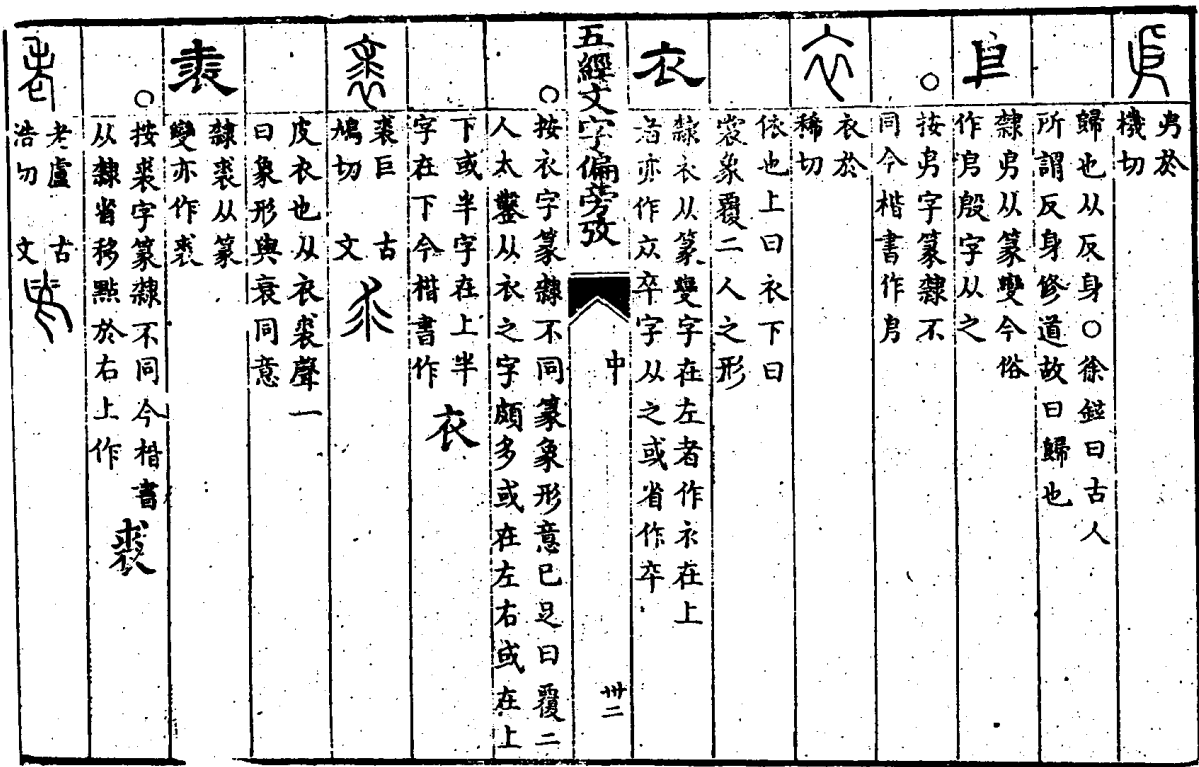 㐆於
機切
歸也从反身○徐鉉曰古人
所謂反身修道故曰歸也
隸㐆从篆變今俗
作㐆殷字从之
○
按㐆字篆隸不
同今楷書作㐆
衣於
稀切
依也上曰衣下曰
裳象覆二人之形
衣
隸衣从篆變字在左者作衤在上
者亦作㐺卒字从之或省作卒
五經文字偏旁攷
中
卅二
○
按衣字篆隸不同篆象形意已足曰覆二
人太鑿从衣之字頗多或在左右或在上
下或半字在上半
字在下今楷書作
衣
裘巨
鳩切
古
文
皮衣也从衣裘聲一
曰象形與衰同意
裘
隸裘从篆
變亦作裘
○
按裘字篆隸不同今楷書
从隸省移點於右上作
裘
老盧
浩切
古
文